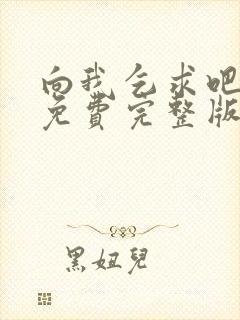 向我乞求吧
免費完整版
黑妞兒